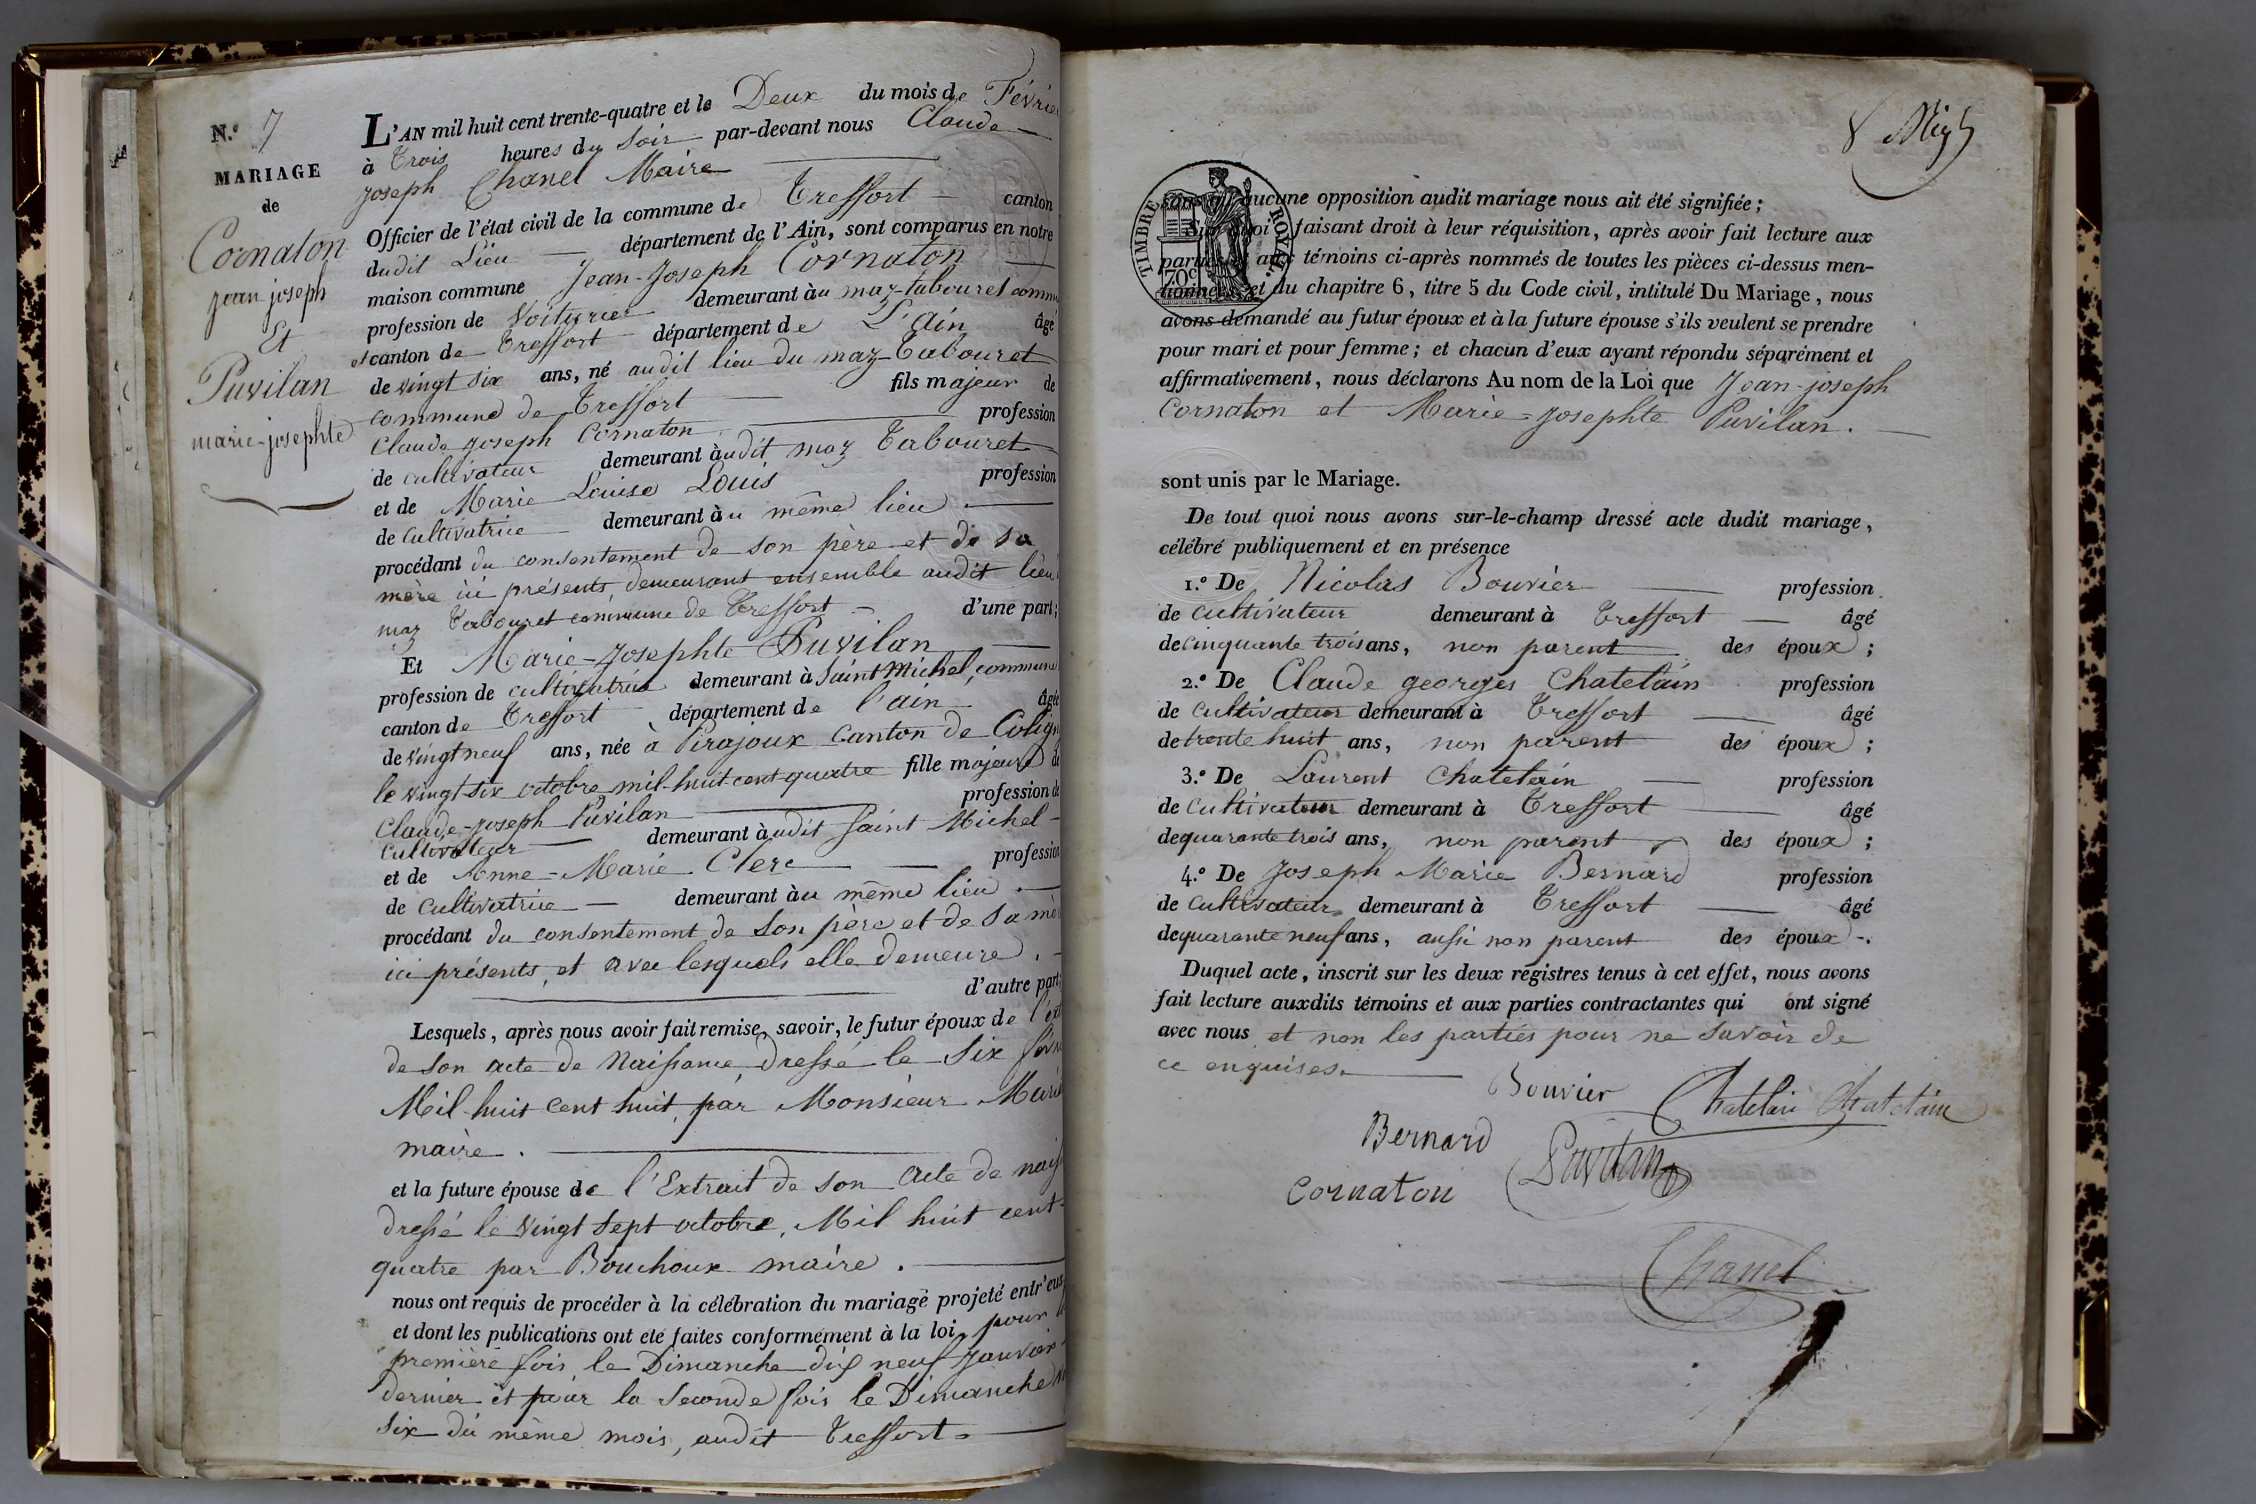 N.º 7
MARIAGE
de
Cornaton
jean-joseph
Et
Puvilan
marie-josephte
L'AN mil huit cent trente-quatre et le Deux du mois de Février
à Trois heures du Soir par-devant nous Claude
joseph Chanel Maire
Officier de l'état civil de la commune de Treffort canton
dudit Lieu département de l'Ain, sont comparus en notre
maison commune Jean-Joseph Cornaton
profession de Voiturier demeurant àu maz-tabouret commune
et canton de Treffort département de L'ain âgé
de vingt six ans, né audit lieu du maz-Tabouret
commune de Treffort fils majeur de
Claude joseph Cornaton profession
de cultivateur demeurant àudit maz Tabouret
et de Marie Louise Louis profession
de Cultivatrice demeurant àu même lieu
procédant du consentement de son père et de sa
mère ici présents, demeurant ensemble audit lieu
maz Tabouret commune de Treffort d'une part;
Et Marie-josephte Puvilan
profession de cultivatrice demeurant à Saint Michel, commune
canton de Treffort département de l'ain âgée
de vingt neuf ans, née à Pirajoux canton de Coligny
le vingt-six octobre mil-huit cent quatre fille majeure de
Claude-joseph Puvilan profession de
Cultivateur demeurant àudit Saint Michel
et de Anne-Marie Clerc profession
de Cultivatrice demeurant àu même lieu
procédant du consentement de Son père et de Sa mère
ici présents, et avec lesquels elle demeure.
d'autre part;
Lesquels, après nous avoir fait remise, savoir, le futur époux de l'
de son acte de Naissance, dressé le Six
Mil-huit cent huit, par Monsieur
maire.
et la future épouse de l'Extrait de son Acte de
dressé le Vingt Sept octobre, Mil huit cent-
quatre par Bouchoux maire.
nous ont requis de procéder à la célébration du mariage projeté entr'eux
et dont les publications ont été faites conformément à la loi, pour la
première fois le Dimanche dix neuf Janvier
dernier et pour la Seconde fois le Dimanche
Six du même mois, audit Treffort.
8
TIMBRE ROYAL.
70c
sans qu'aucune opposition audit mariage nous ait été signifiée;
Sur quoi faisant droit à leur réquisition, après avoir fait lecture aux
parties et aux témoins ci-après nommés de toutes les pièces ci-dessus men-
tionnées, et du chapitre 6, titre 5 du Code civil, intitulé Du Mariage, nous
avons demandé au futur époux et à la future épouse s'ils veulent se prendre
pour mari et pour femme; et chacun d'eux ayant répondu séparément et
affirmativement, nous déclarons Au nom de la Loi que Jean-joseph
Cornaton et Marie-josephte Puvilan.
sont unis par le Mariage.
De tout quoi nous avons sur-le-champ dressé acte dudit mariage,
célébré publiquement et en présence
1.º De Nicolas Bouvier profession
de Cultivateur demeurant à Treffort âgé
de cinquante trois ans, non parent des époux;
2.º De Claude georges Chatelain profession
de Cultivateur demeurant à Treffort âgé
de trente huit ans, non parent des époux;
3.º De Laurent Chatelain profession
de Cultivateur demeurant à Treffort âgé
de quarante trois ans, non parent des époux;
4.º De Joseph Marie Bernard profession
de Cultivateur demeurant à Treffort âgé
de quarante neuf ans, aussi non parent des époux.
Duquel acte, inscrit sur les deux registres tenus à cet effet, nous avons
fait lecture auxdits témoins et aux parties contractantes qui ont signé
avec nous et non les parties pour ne savoir de
ce enquises.
Bouvier Chatelain Chatelain
Bernard
Puvilan
Cornaton
Chanel